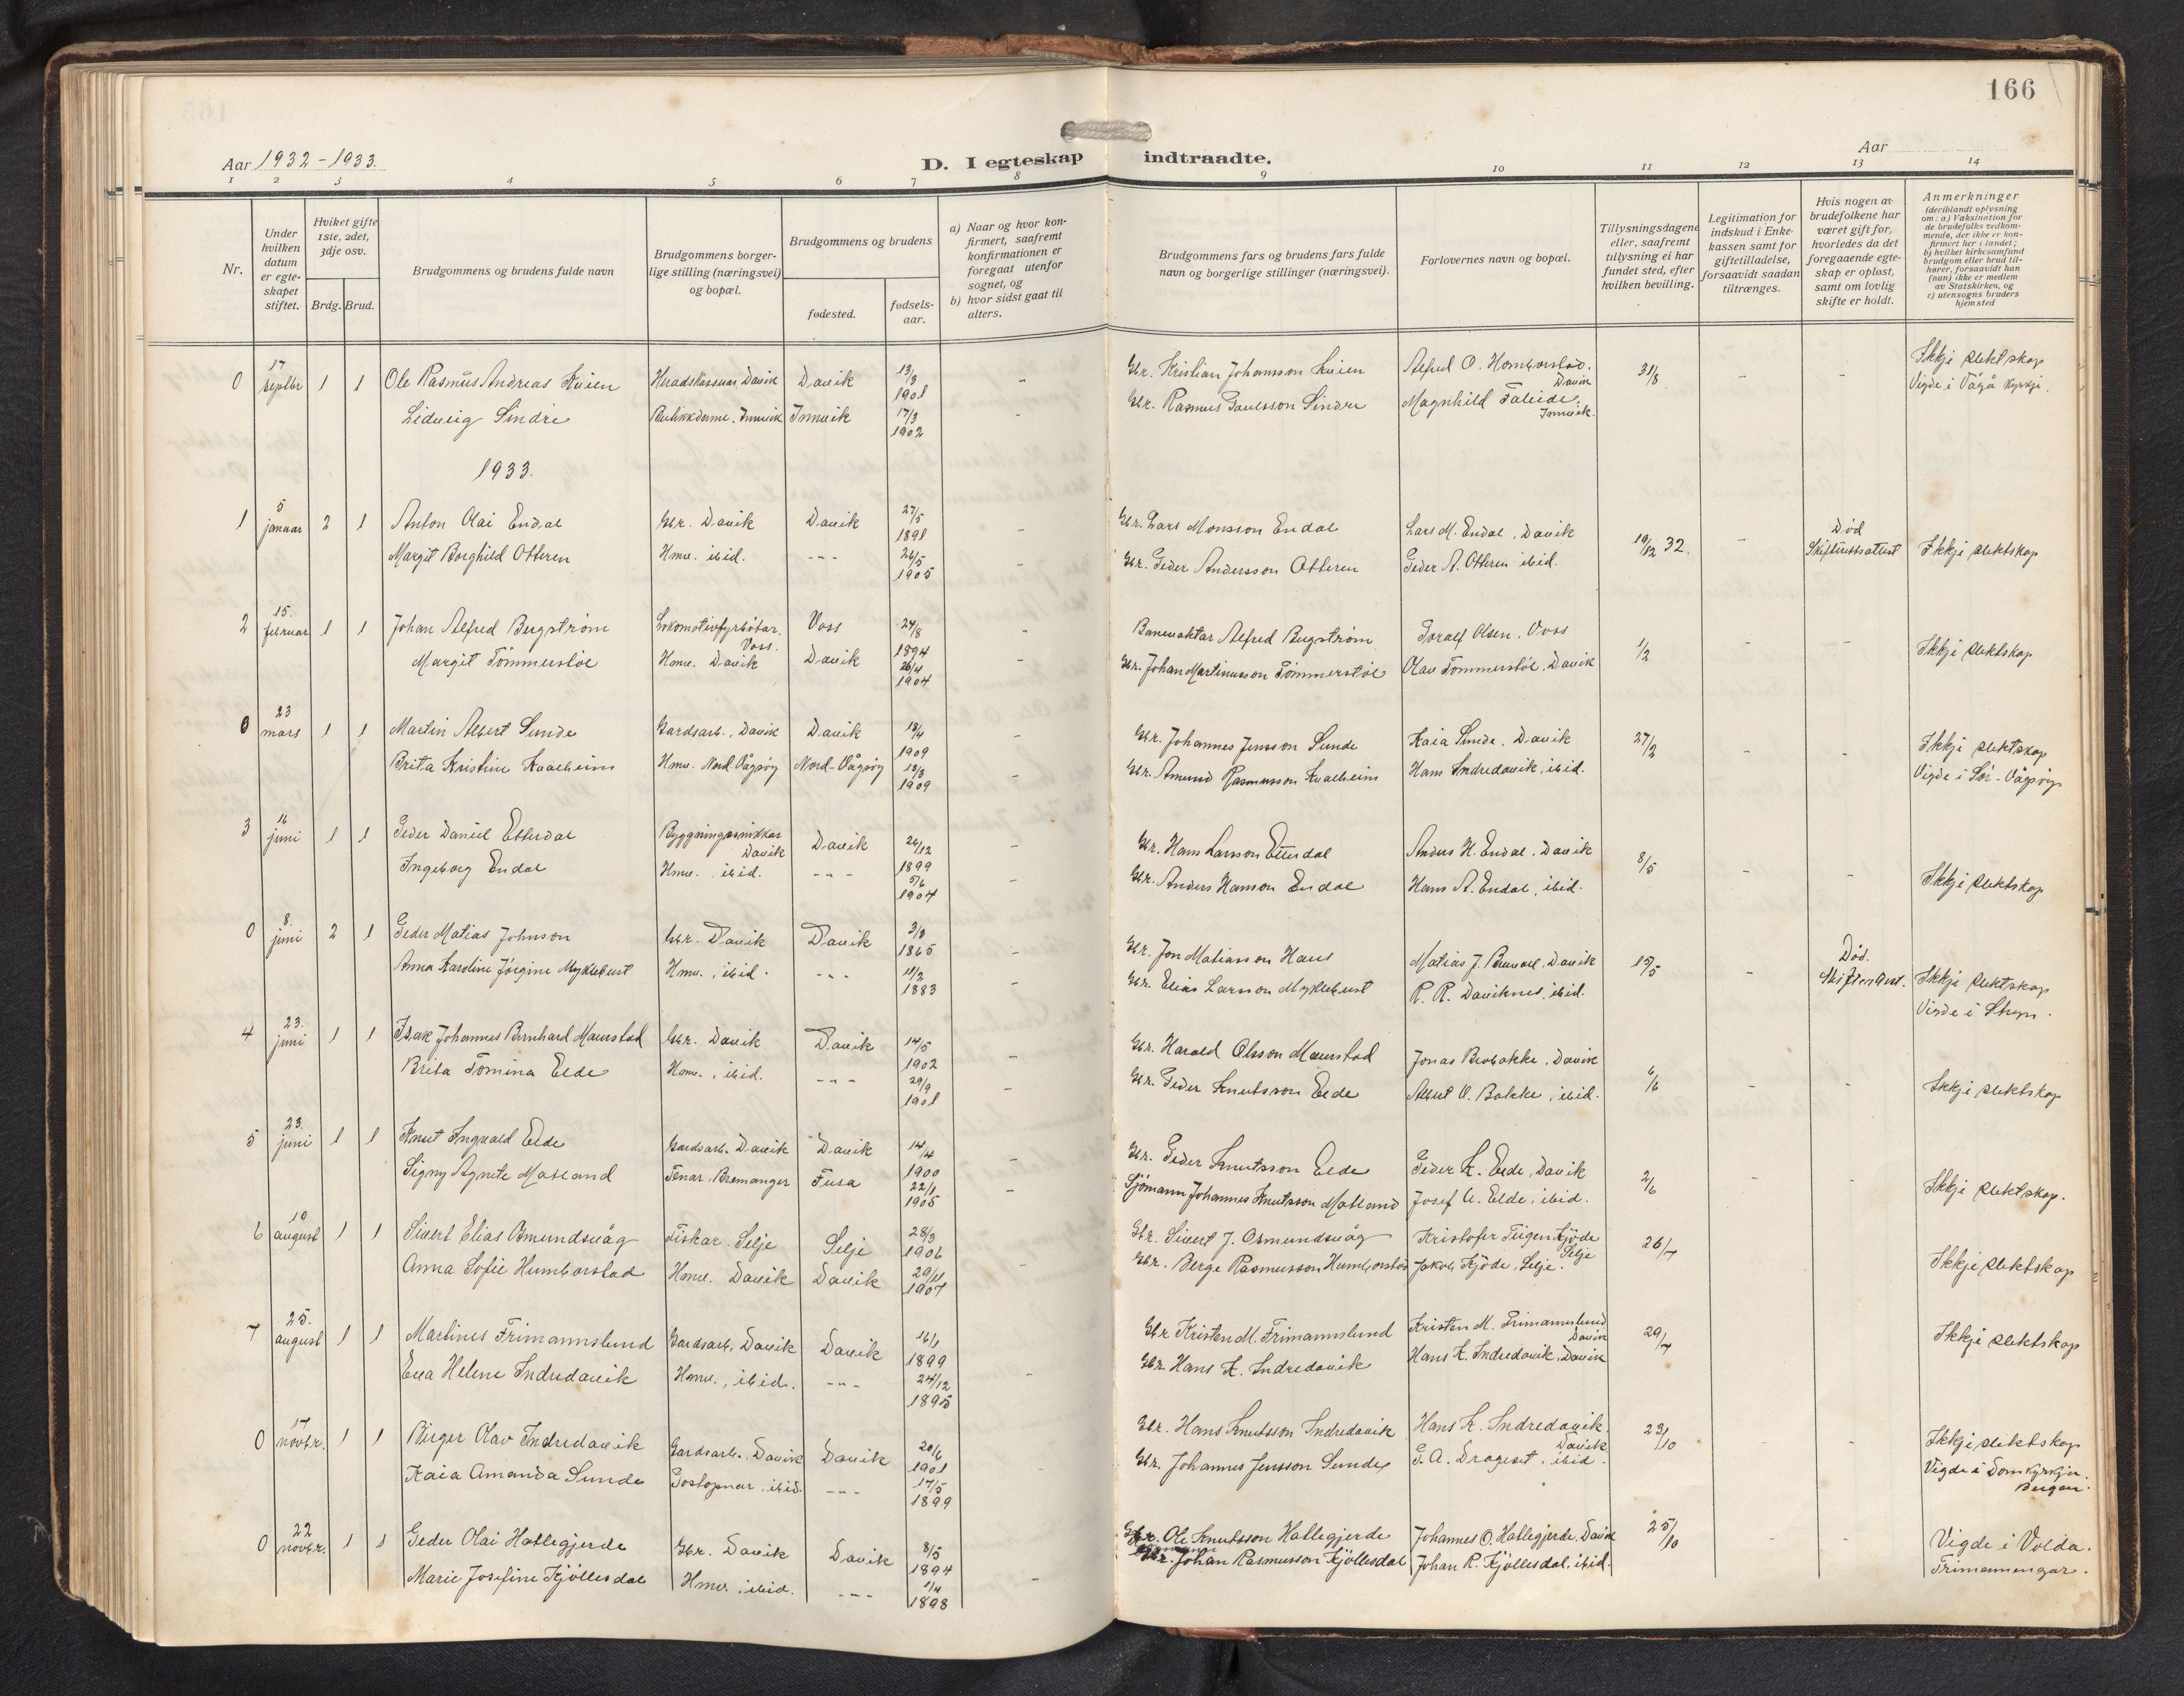 166
Aar 1932-1933.
D. I egteskap indtraadte.
Aar
1 2 3 4 5 6 7 8 9 10 11 12 13 14
Nr.
Under hvilken datum er egteskapet stiftet.
Hviket gifte 1ste, 2det, 3dje osv.
Brdg. Brud.
Brudgommens og brudens fulde navn
Brudgommens borgerlige stilling (næringsvei) og bopæl.
Brudgommens og brudens
fødested.
fødselsaar.
a) Naar og hvor konfirmert, saafremt konfirmationen er foregaat utenfor sognet, og
b) hvor sidst gaat til alters.
Brudgommens fars og brudens fars fulde navn og borgerlige stillinger (næringsvei).
Forlovernes navn og bopæl.
Tillysningsdagene eller, saafremt tillysning ei har fundet sted, efter hvilken bevilling.
Legitimation for indskud i Enkekassen samt for giftetilladelse, forsaavidt saadan tiltrænges.
Hvis nogen av brudefolkene har været gift før, hvorledes da det foregaaende egteskap er opløst, samt om lovlig skifte er holdt.
Anmerkninger
(deriblandt oplysning om: a) Vaksination for de brudefolks vedkommende, der ikke er konfirmert her i landet; b) hvilket kirkesamfund brudgom eller brud tilhører, forsaavidt han (hun) ikke er medlem av Statskirken, og c) utensogns bruders hjemsted
0 17 septbr 1 1 Ole Rasmus Andreas Kvien Heradskasserar, Davik Davik 13/3 1901 - Gbr. Kristian Johansson Kvien Alfred O. Homborstad. Davik 31/8 - - Ikkje slektskap
Lidveig Sindre Butikkdame. Innvik Innvik 17/3 1902 - Gbr. Rasmus Paulsson Sindre Magnhild Faleide, Innvik. Vigde i Vågå kyrkje.
1933.
1 5 januar 2 1 Anton Olai Endal Gbr. Davik Davik 27/5 1891 - Gbr. Lars Monsson Endal Lars M. Endal, Davik 19/12 32. - Død Ikkje slektskap
Margit Borghild Otteren Hmv. ibid. - - - 26/5 1905 - Gbr. Peder Andersson Otteren Peder A. Otteren ibid. Skifterettsattest
2 15. februar 1 1 Johan Alfred Bergstrøm Lokomotivfyrbøtar. Voss. Voss 24/8 1894 - Banevaktar Alfred Bergstrøm Toralf Olsen. Voss 1/2 - - Ikkje slektskap
Margit Tømmerstøl Hmv. Davik Davik 26/4 1904 - Gbr. Johan Martinusson Tømmerstøl Olav Tømmerstøl, Davik
0 23 mars 1 1 Martin Albert Sunde Gardsarb., Davik Davik 18/4 1909 - Gbr. Johannes Jensson Sunde Kaia Sunde. Davik 27/2 - - Ikkje slektskap
Brita Kristine Kvalheim Hmv. Nord-Vågsøy Nord-Vågsøy 18/3 1909 - Gbr. Amund Rasmusson Kvalheim Hans Indredavik, ibid. Vigde i Sør-Vågsøy
3 16 juni 1 1 Peder Daniel Etterdal Byggningssnikkar Davik Davik 26/12 1899 - Gbr. Hans Larsson Etterdal Anders H. Endal. Davik 8/5 - - Ikkje slektskap
Ingeborg Endal Hmv. ibid. - - - 5/6 1904 - Gbr. Anders Hanson Endal Hans A. Endal, ibid.
0 8. juni 2 1 Peder Matias Johnson Gbr. Davik Davik 3/8 1865 - Gbr. Jon Matiasson Haus Matias J. Davik 15/5 - Død. Ikkje slektskap
Anna Karoline Jørgine Myklebust Hmv., ibid. - - - 11/2 1883 - Gbr. Elias Larsson Myklebust R. R. Daviknes, ibid. Vigde i Stryn.
4 23. juni 1 1 Isak Johannes Bernhard Maurstad Gbr. Davik Davik 14/5 1902 - Gbr. Harald Olsson Maurstad Jonas Brobakke, Davik 6/6 - - Ikkje slektskap
Brita Tomina Elde Hmv., ibid. - - - 29/9 1901 - Gbr. Peder Knutsson Elde Albert O. Bakke, ibid.
5 23. juni 1 1 Knut Ingvald Elde Gardsarb. Davik Davik 14/4 1900 - Gbr. Peder Knutsson Elde Peder K. Elde, Davik 2/6 - - Ikkje slektskap.
Signy Agnete Matland Tenar, Bremanger Fusa 22/1 1905 - Sjømann Johannes Knutsson Matland Josef A. Elde, ibid.
6 10 august 1 1 Sivert Elias Osmundsvåg Fiskar. Selje Selje 28/3 1906 Gbr. Sivert J. Osmundsvåg Kristofer Tiigen Kjøde Selje 26/7 Ikkje slektskap
Anna Sofie Humborstad Hmv. Davik Davik 29/11 1907 - Gbr. Berge Rasmusson Humborstad Jakob Kjøde, Selje.
7 25. august 1 1 Martines Frimannslund Gardsarb., Davik Davik 16/1 1899 Gbr Kristen M. Frimannslund Kristen M. Frimannslund Davik 29/7 Ikkje slektskap
Eva Helene Indredavik Hmv., ibid. - - - 24/12 1895 - Gbr. Hans K. Indredavik Hans K. Indredavik, Davik
0 17 novbr. 1 1 Birger Olav Indredavik Gardsarb., Davik Davik 20/6 1901 Gbr. Hans Knutsson Indredavik Hans K. Indredavik, Davik 23/10 - - Ikkje slektskap
Kaia Amanda Sunde Postopnar, ibid. - - - 17/5 1899 - Gbr. Johannes Jensson Sunde G. A. Drageset, ibid. Vigde i Domkyrkja. Bergen.
0 22 novbr. 1 1 Peder Olai Hallegjerde Gbr. Davik Davik 8/5 1894 Gbr. Ole Knutsson Hallegjerde Johannes O. Hallegjerde, Davik 25/10 - - Vigde i Volda.
Marie Josefine Kjøllesdal Hmv. ibid. - - - 1/4 1898 - Johan Rasmusson Kjøllesdal Johan R. Kjøllesdal, ibid. Trimenningar.